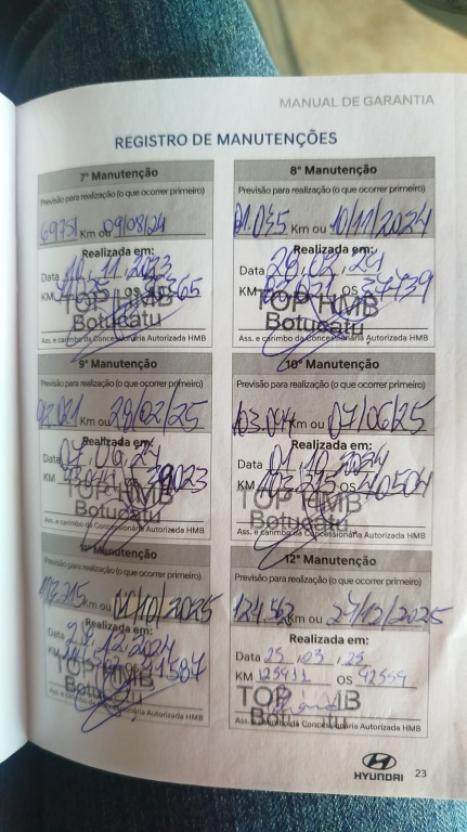 MANUAL DE GARANTIA
REGISTRO DE MANUTENÇÕES
7ª Manutenção
Previsão para realização (o que ocorrer primeiro)
69751 Km ou 09/08/24
Realizada em:
Data 10, 11, 2023
KM OS 365
TOP HMB
Botucatu
Ass. e carimbo da Concessionária Autorizada HMB
8ª Manutenção
Previsão para realização (o que ocorrer primeiro)
81.035 Km ou 10/11/2024
Realizada em:
Data 29, 02, 24
KM OS 37739
TOP HMB
Botucatu
Ass. e carimbo da Concessionária Autorizada HMB
9ª Manutenção
Previsão para realização (o que ocorrer primeiro)
92.021 Km ou 29/02/25
Realizada em:
Data 07, 06, 24
KM OS 39023
TOP HMB
Botucatu
Ass. e carimbo da Concessionária Autorizada HMB
10ª Manutenção
Previsão para realização (o que ocorrer primeiro)
103.044 Km ou 07/06/25
Realizada em:
Data 01, 10, 2024
KM 103.215 OS 40504
TOP HMB
Botucatu
Ass. e carimbo da Concessionária Autorizada HMB
11ª Manutenção
Previsão para realização (o que ocorrer primeiro)
113.215 Km ou 01/10/2025
Realizada em:
Data 27, 12, 2024
KM OS 41587
TOP HMB
Botucatu
Ass. e carimbo da Concessionária Autorizada HMB
12ª Manutenção
Previsão para realização (o que ocorrer primeiro)
124.562 Km ou 27/12/2025
Realizada em:
Data 25, 03, 25
KM 125911 OS 42559
TOP HMB
Botucatu
Ass. e carimbo da Concessionária Autorizada HMB
HYUNDAI 23